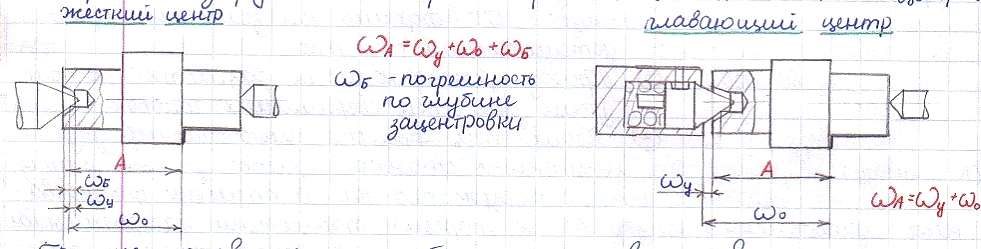 жёсткий центр
плавающий центр
ω_A = ω_у + ω_о + ω_Б
ω_Б - погрешность
по глубине
зацентровки
A
ω_Б
ω_ц
ω_о
A
ω_ц
ω_о
ω_A = ω_у + ω_о